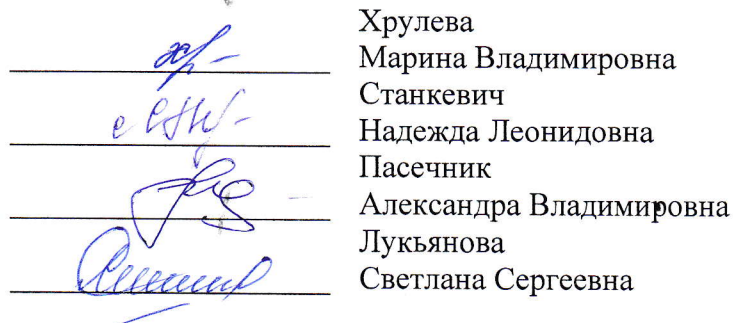 Хрулева
Марина Владимировна
Станкевич
Надежда Леонидовна
Пасечник
Александра Владимировна
Лукьянова
Светлана Сергеевна